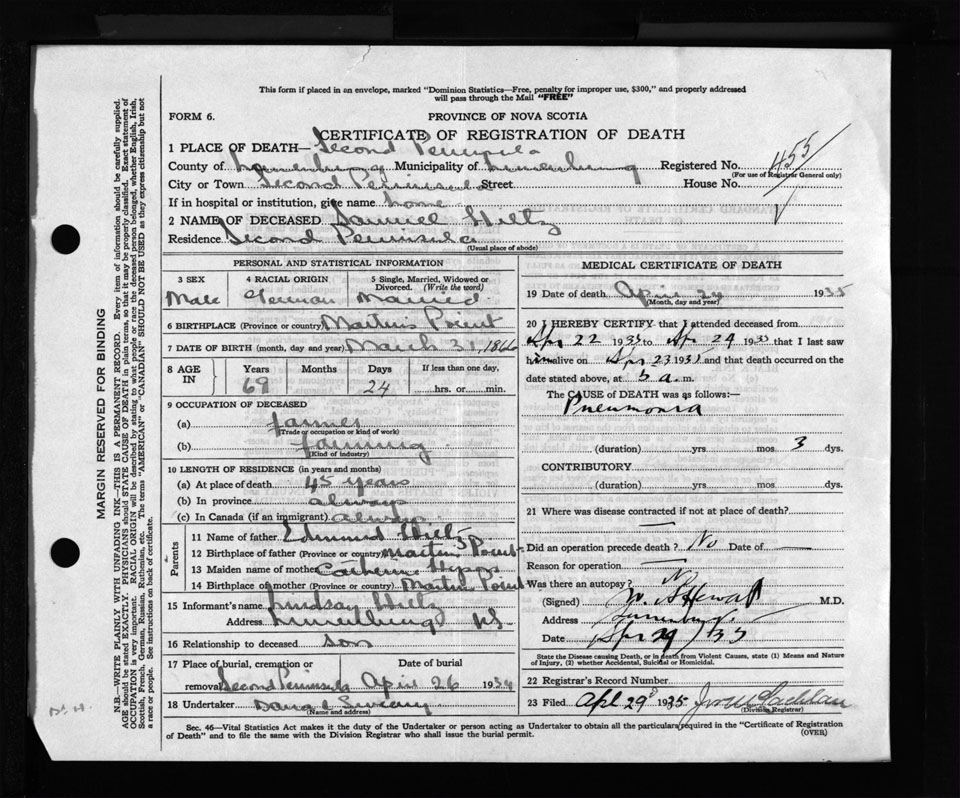 This form if placed in an envelope, marked "Dominion Statistics—Free, penalty for improper use, $300," and properly addressed
will pass through the Mail "FREE"
FORM 6.
PROVINCE OF NOVA SCOTIA
CERTIFICATE OF REGISTRATION OF DEATH
1 PLACE OF DEATH— Second Peninsula
County of Lunenburg Municipality of Lunenburg Registered No. 455
(For use of Registrar General only)
City or Town Second Peninsula Street House No.
If in hospital or institution, give name home
2 NAME OF DECEASED Samuel Hiltz
Residence Second Peninsula
(Usual place of abode)
PERSONAL AND STATISTICAL INFORMATION
3 SEX 4 RACIAL ORIGIN 5 Single, Married, Widowed or
Divorced. (Write the word)
Male German Married
6 BIRTHPLACE (Province or country) Martins Point
7 DATE OF BIRTH (month, day and year) March 31, 1866
8 AGE IN Years Months Days If less than one day,
69 24 hrs. or min.
9 OCCUPATION OF DECEASED
(a) farmer
(Trade or occupation or kind of work)
(b) farming
(Kind of industry)
10 LENGTH OF RESIDENCE (in years and months)
(a) At place of death 45 years
(b) In province always
(c) In Canada (if an immigrant) always
Parents
11 Name of father Edmund Hiltz
12 Birthplace of father (Province or country) Martins Point
13 Maiden name of mother Catherine
14 Birthplace of mother (Province or country) Martin Point
15 Informant's name Lindsay Hiltz
Address Lunenburg NS.
16 Relationship to deceased son
17 Place of burial, cremation or Date of burial
removal Second Peninsula April 26 1934
18 Undertaker
(Name and address)
MEDICAL CERTIFICATE OF DEATH
19 Date of death April 24 1935
(Month, day and year)
20 I HEREBY CERTIFY that I attended deceased from
Apr 22 1935 to Apr 24 1935 that I last saw
him alive on Apr 23 1935 and that death occurred on the
date stated above, at 5 a. m.
The CAUSE of DEATH was as follows:—
Pneumonia
(duration) yrs mos 3 dys.
CONTRIBUTORY
(duration) yrs. mos. dys.
21 Where was disease contracted if not at place of death? —
Did an operation precede death? No Date of —
Reason for operation —
Was there an autopsy? No
(Signed) M.D.
Address Lunenburg
Date Apr 29/35
State the Disease causing Death, or in death from Violent Causes, state (1) Means and Nature
of Injury, (2) whether Accidental, Suicidal or Homicidal.
22 Registrar's Record Number
23 Filed Apl 29 1935
(Division Registrar)
Sec. 46—Vital Statistics Act makes it the duty of the Undertaker or person acting as Undertaker to obtain all the particulars required in the "Certificate of Registration
of Death" and to file the same with the Division Registrar who shall issue the burial permit.
(OVER)
MARGIN RESERVED FOR BINDING
N.B.—WRITE PLAINLY WITH UNFADING INK—THIS IS A PERMANENT RECORD. Every item of information should be carefully supplied.
AGE should be stated EXACTLY. PHYSICIANS should STATE CAUSE OF DEATH in plain terms, so that it may be properly classified. Exact statement of
OCCUPATION is very important. RACIAL ORIGIN will be described by stating to what people or race the deceased person belonged, whether English, Irish,
Scottish, French, German, Russian, Ruthenian, etc. The terms "AMERICAN" or "CANADIAN" SHOULD NOT BE USED as they express citizenship but not
a race or people. See instructions on back of certificate.